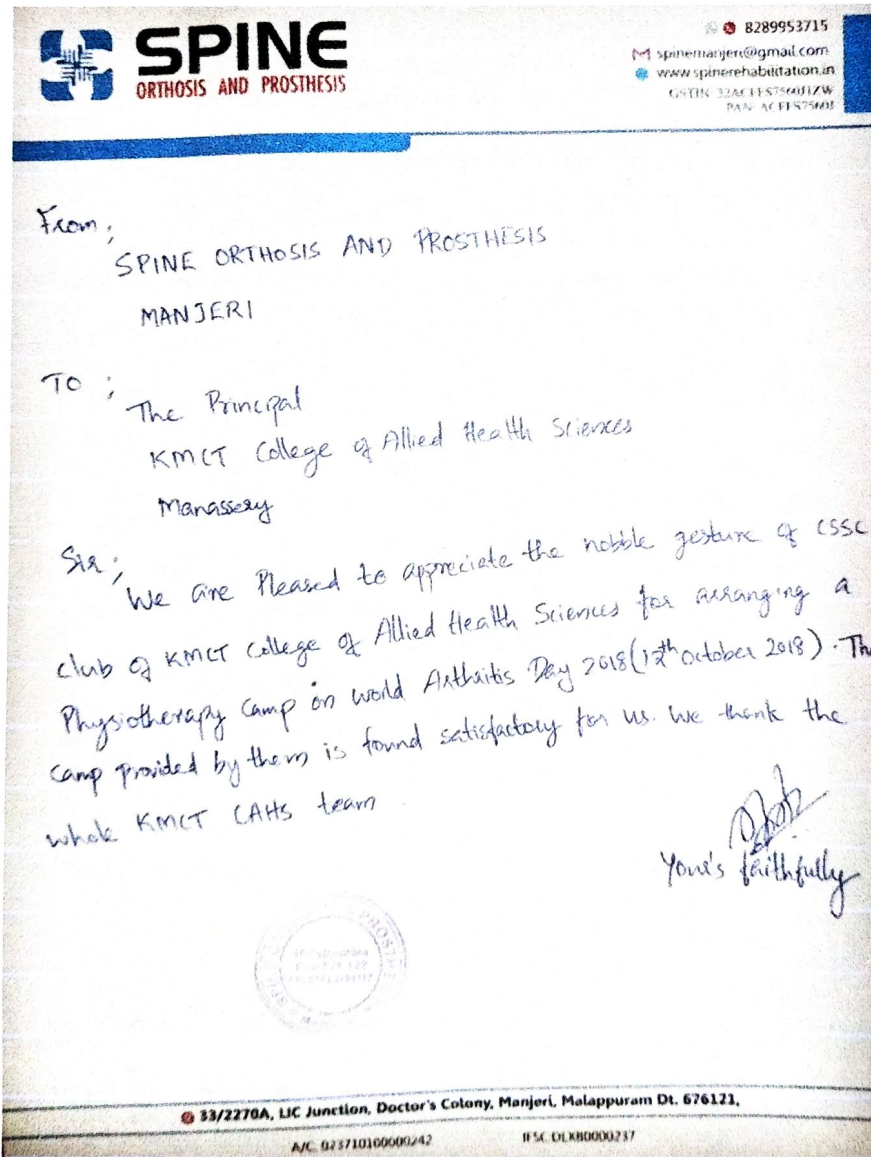 SPINE
ORTHOSIS AND PROSTHESIS
8289953715
spinemanjeri@gmail.com
www.spinerehabilitation.in
GSTIN
PAN
From;
SPINE ORTHOSIS AND PROSTHESIS
MANJERI
TO ;
The Principal
KMCT College of Allied Health Sciences
Manassery
Sir;
We are Pleased to appreciate the nobble gesture of CSSC
club of KMCT College of Allied Health Sciences for arranging a
Physiotherapy Camp on world Arthritis Day 2018(12th October 2018). The
camp provided by them is found satisfactory for us. We thank the
whole KMCT CAHS team
Your's faithfully
33/2270A, LIC Junction, Doctor's Colony, Manjeri, Malappuram Dt. 676121,
A/C. 023710100000242 IFSC. DLXB0000237